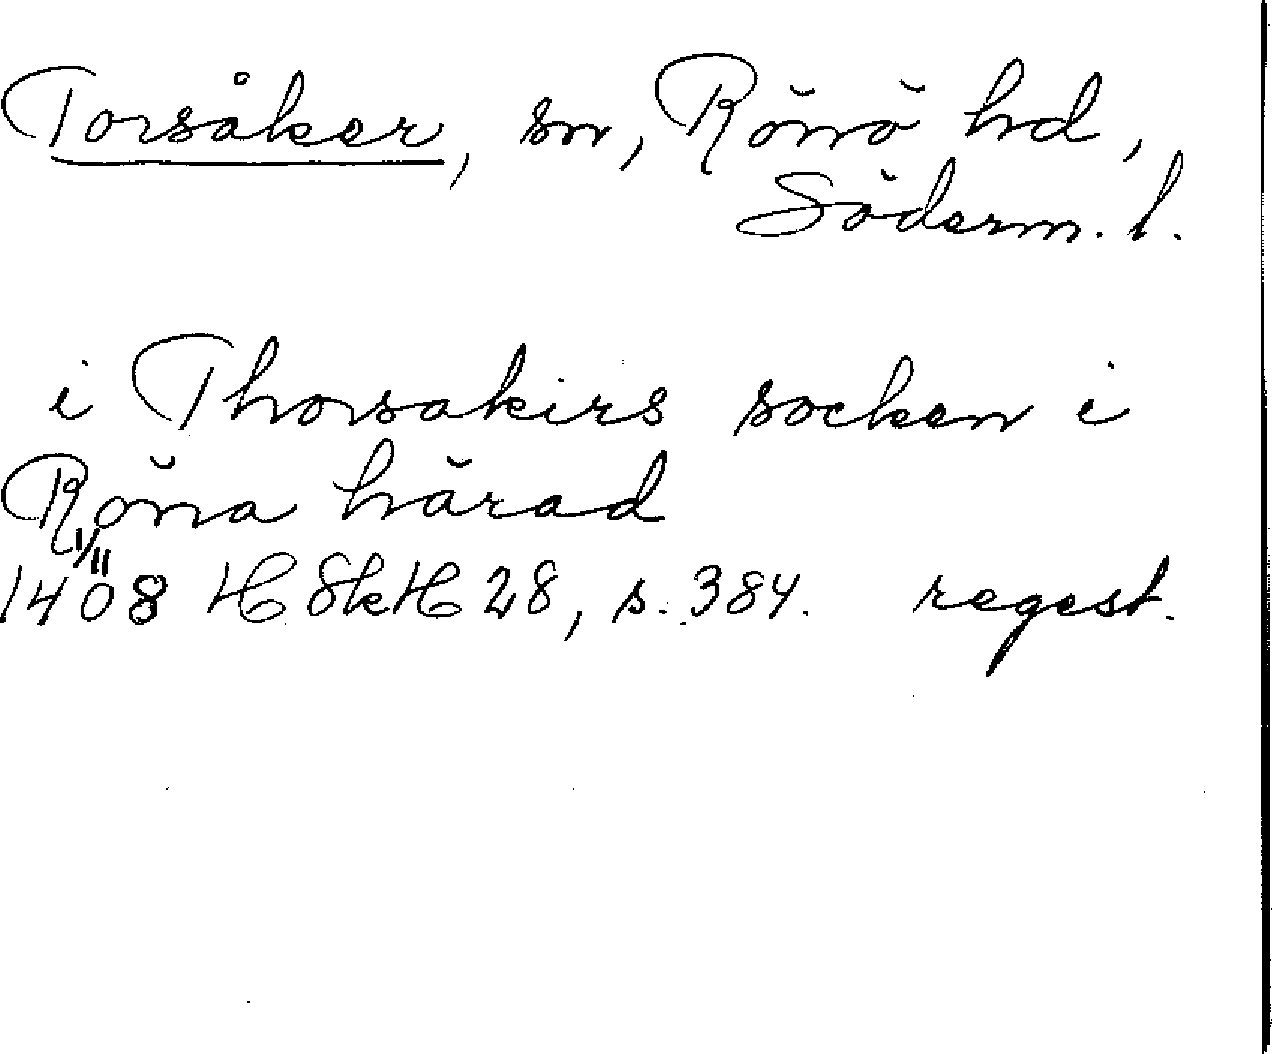 Torsåker, sn, Rönö hd,
Söderm. l.
i Thorsakirs socken i
Röna härad
1/11
1408 HSkH 28, s. 384. regest.